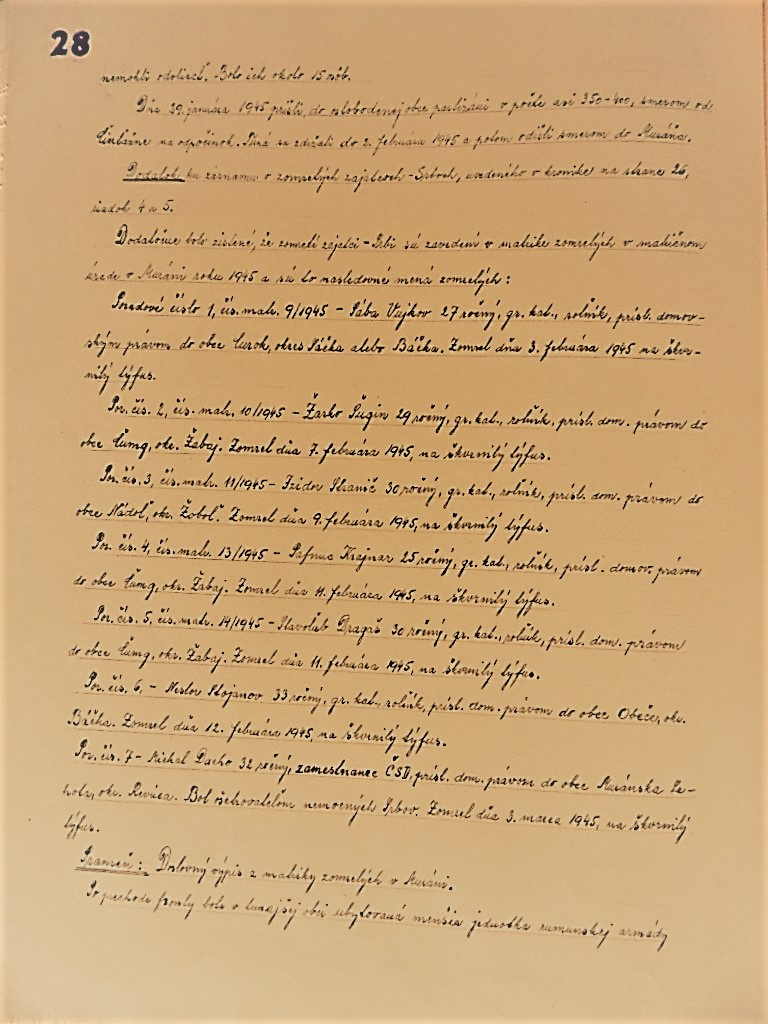 28
nemohli odolieť. Bolo ich okolo 15 osôb.
Dňa 29. januára 1945 prišli, do oslobodenej obce partizáni v počte asi 350-400, smerom od
na odpočinok. Tuná sa zdržali do 2. februára 1945 a potom odišli smerom do Muráňa.
Dodatok ku záznamu o zomrelých zajatcoch - Srboch, uvedeného v kronike na strane 26,
riadok 4 a 5.
Dodatočne bolo zistené, že zomrelí zajatci - Srbi sú zavedení v matrike zomrelých v matričnom
úrade v Muráni roku 1945 a sú to nasledovné mená zomrelých :
Poradové číslo 1, čís. matr. 9/1945 - Sába Vujkov 27 ročný, gr. kat., roľník, prísl. domov-
ským právom do obce Curok, okres Sáčka alebo Báčka. Zomrel dňa 3. februára 1945 na škvr-
nitý týfus.
Por. čís. 2, čís. matr. 10/1945 - Žarko Šugin 29 ročný, gr. kat., roľník, prísl. dom. právom do
obce Čumg, okr. Žabaj. Zomrel dňa 7. februára 1945, na škvrnitý týfus.
Por. čís. 3, čís. matr. 11/1945 - Izidor Stranič 30 ročný, gr. kat., roľník, prísl. dom. právom do
obce Nádoľ, okr. Žoboľ. Zomrel dňa 9. februára 1945, na škvrnitý týfus.
Por. čís. 4, čís. matr. 13/1945 - Krajnar 25 ročný, gr. kat., roľník, prísl. domov. právom
do obce Čumg, okr. Žabaj. Zomrel dňa 11. februára 1945, na škvrnitý týfus.
Por. čís. 5, čís. matr. 14/1945 - Slavoľub Dragáš 30 ročný, gr. kat., roľník, prísl. dom. právom
do obce Čumg, okr. Žabaj. Zomrel dňa 11. februára 1945, na škvrnitý týfus.
Por. čís. 6, - Nestor Stojanov 33 ročný, gr. kat., roľník, prísl. dom. právom do obce Obeče, okr.
Báčka. Zomrel dňa 12. februára 1945, na škvrnitý týfus.
Por. čís. 7 - Michal Dacho 32 ročný, zamestnanec ČSD, prísl. dom. právom do obce Muránska Le-
hota, okr. Revúca. Bol ošetrovateľom nemocných Srbov. Zomrel dňa 3. marca 1945, na škvrnitý
týfus.
Prameň : Doslovný výpis z matriky zomrelých v Muráni.
Po prechode fronty bola v tunajšej obci ubytovaná menšia jednotka rumunskej armády